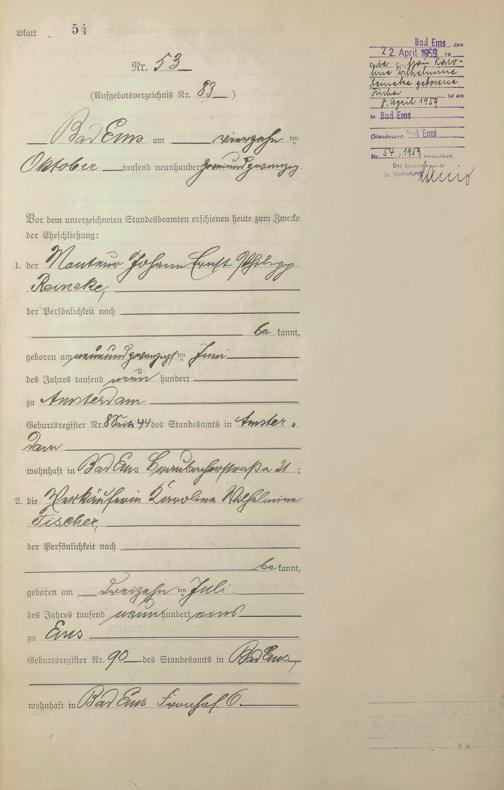 Blatt 54
Nr. 53
(Aufgebotsverzeichnis Nr. 83)
Bad Ems am vierzehn ten
Oktober tausend neunhundert zweiundzwanzig.
Vor dem unterzeichneten Standesbeamten erschienen heute zum Zwecke
der Eheschließung:
1. der Monteur Johann Ernst Philipp
Reineke,
der Persönlichkeit nach
be kannt,
geboren am neunundzwanzigsten Juni
des Jahres tausend neun hundert
zu Amsterdam
Geburtsregister Nr. 8 Seite 44 des Standesamts in Amster-
dam
wohnhaft in Bad Ems Braubacherstraße 21;
2. die Verkäuferin Karoline Wilhelmine
Fischer,
der Persönlichkeit nach
be kannt,
geboren am dreizehn ten Juli
des Jahres tausend neun hundert eins
zu Ems
Geburtsregister Nr. 90 des Standesamts in Bad Ems,
wohnhaft in Bad Ems Fronhof 6.
Bad Ems, den
22. April 1959
Frau Karo-
line Wilhelmine
Reineke geborene
Fischer ist am
8. April 1959
in Bad Ems
(Standesamt Bad Ems
Nr. 54/1959 verstorben.
Der Standesbeamte
In Vertretung